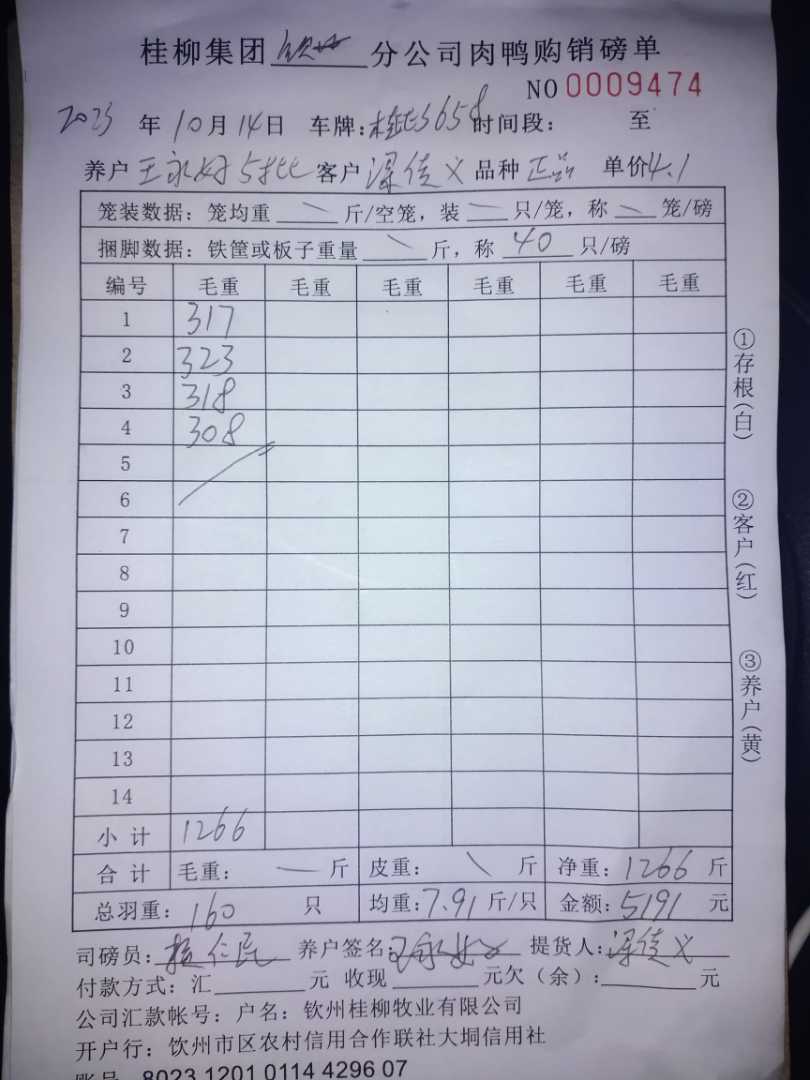 桂柳集团 钦州 分公司肉鸭购销磅单
NO 0009474
2023 年 10 月 14 日 车牌: 3658 时间段: 至
养户 王永好 5批 客户 梁佳义 品种 正品 单价 4.1
笼装数据: 笼均重 斤/空笼, 装 只/笼, 称 笼/磅
捆脚数据: 铁筐或板子重量 斤, 称 40 只/磅
编号 毛重 毛重 毛重 毛重 毛重 毛重
1 317
2 323
3 318
4 308
5
6
7
8
9
10
11
12
13
14
小计 1266
合计 毛重: 斤 皮重: 斤 净重: 1266 斤
总羽重: 160 只 均重: 7.91 斤/只 金额: 5191 元
司磅员: 仁民 养户签名: 王永好 提货人: 梁佳义
付款方式: 汇 元 收现 元欠(余): 元
公司汇款帐号: 户名: 钦州桂柳牧业有限公司
开户行: 饮州市区农村信用合作联社大垌信用社
账号 8023 1201 0114 4296 07
①存根(白)
②客户(红)
③养户(黄)